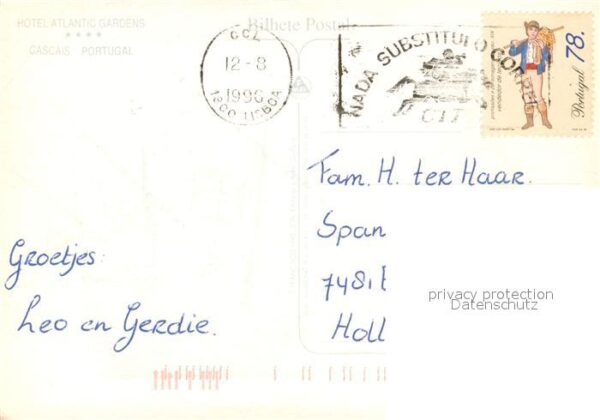 HOTEL ATLANTIC GARDENS
★ ★ ★ ★
CASCAIS PORTUGAL
Bilhete Postal
CCL
12-8
1996
1900 LISBOA
NADA SUBSTITUI O CORREIO
CTT
78.
Portugal
Fam. H. ter Haar.
Span
7481
Holl
privacy protection
Datenschutz
Groetjes:
Leo en Gerdie.